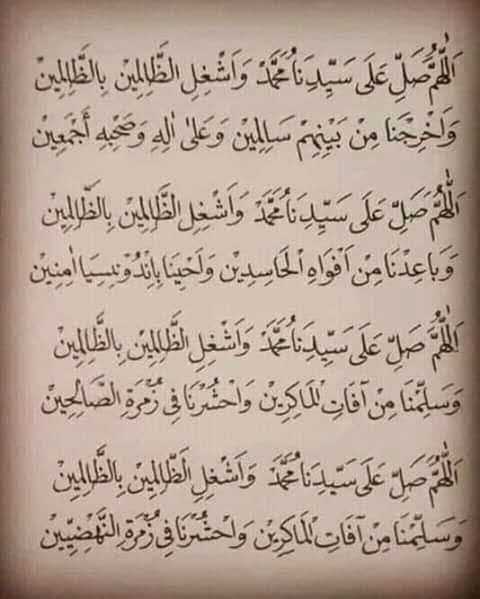 اَللّٰهُمَّ صَلِّ عَلَى سَيِّدِنَا مُحَمَّدْ وَاَشْغِلِ الظَّالِمِيْنَ بِالظَّالِمِيْنَ
وَاَخْرِجْنَا مِنْ بَيْنِهِمْ سَالِمِيْنَ وَعَلىٰ اٰلِهِ وَصَحْبِهِ أَجْمَعِيْنَ
اَللّٰهُمَّ صَلِّ عَلَى سَيِّدِنَا مُحَمَّدْ وَاَشْغِلِ الظَّالِمِيْنَ بِالظَّالِمِيْنَ
وَبَاعِدْنَا مِنْ اَفْوَاهِ الْحَاسِدِيْنَ وَاَحْيِنَا بِاِنْدُونِيْسِيَا اٰمِنِيْنَ
اَللّٰهُمَّ صَلِّ عَلَى سَيِّدِنَا مُحَمَّدْ وَاَشْغِلِ الظَّالِمِيْنَ بِالظَّالِمِيْنَ
وَسَلِّمْنَا مِنْ آفَاتِ الْمَاكِرِيْنَ وَاحْشُرْنَا فِي زُمْرَةِ الصَّالِحِيْنَ
اَللّٰهُمَّ صَلِّ عَلَى سَيِّدِنَا مُحَمَّدْ وَاَشْغِلِ الظَّالِمِيْنَ بِالظَّالِمِيْنَ
وَسَلِّمْنَا مِنْ آفَاتِ الْمَاكِرِيْنَ وَاحْشُرْنَا فِي زُمْرَةِ النَّهْضِيِّيْنَ